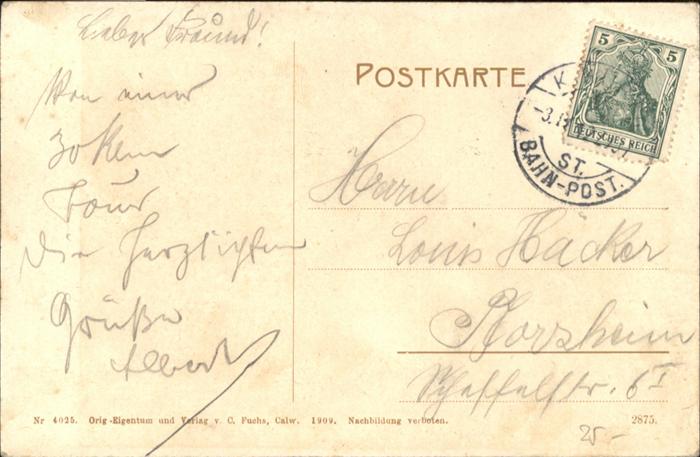 Lieber Freund!
Von einer
30 klm
Tour
die herzlichsten
Grüße
Albert
POSTKARTE
5 5
DEUTSCHES REICH
ST.
BAHN-POST.
Herrn
Louis Häcker
Pforzheim
Scheffelstr. 6 I
Nr 4025. Orig-Eigentum und Verlag v. C. Fuchs, Calw. 1909. Nachbildung verboten.
2875.
25-